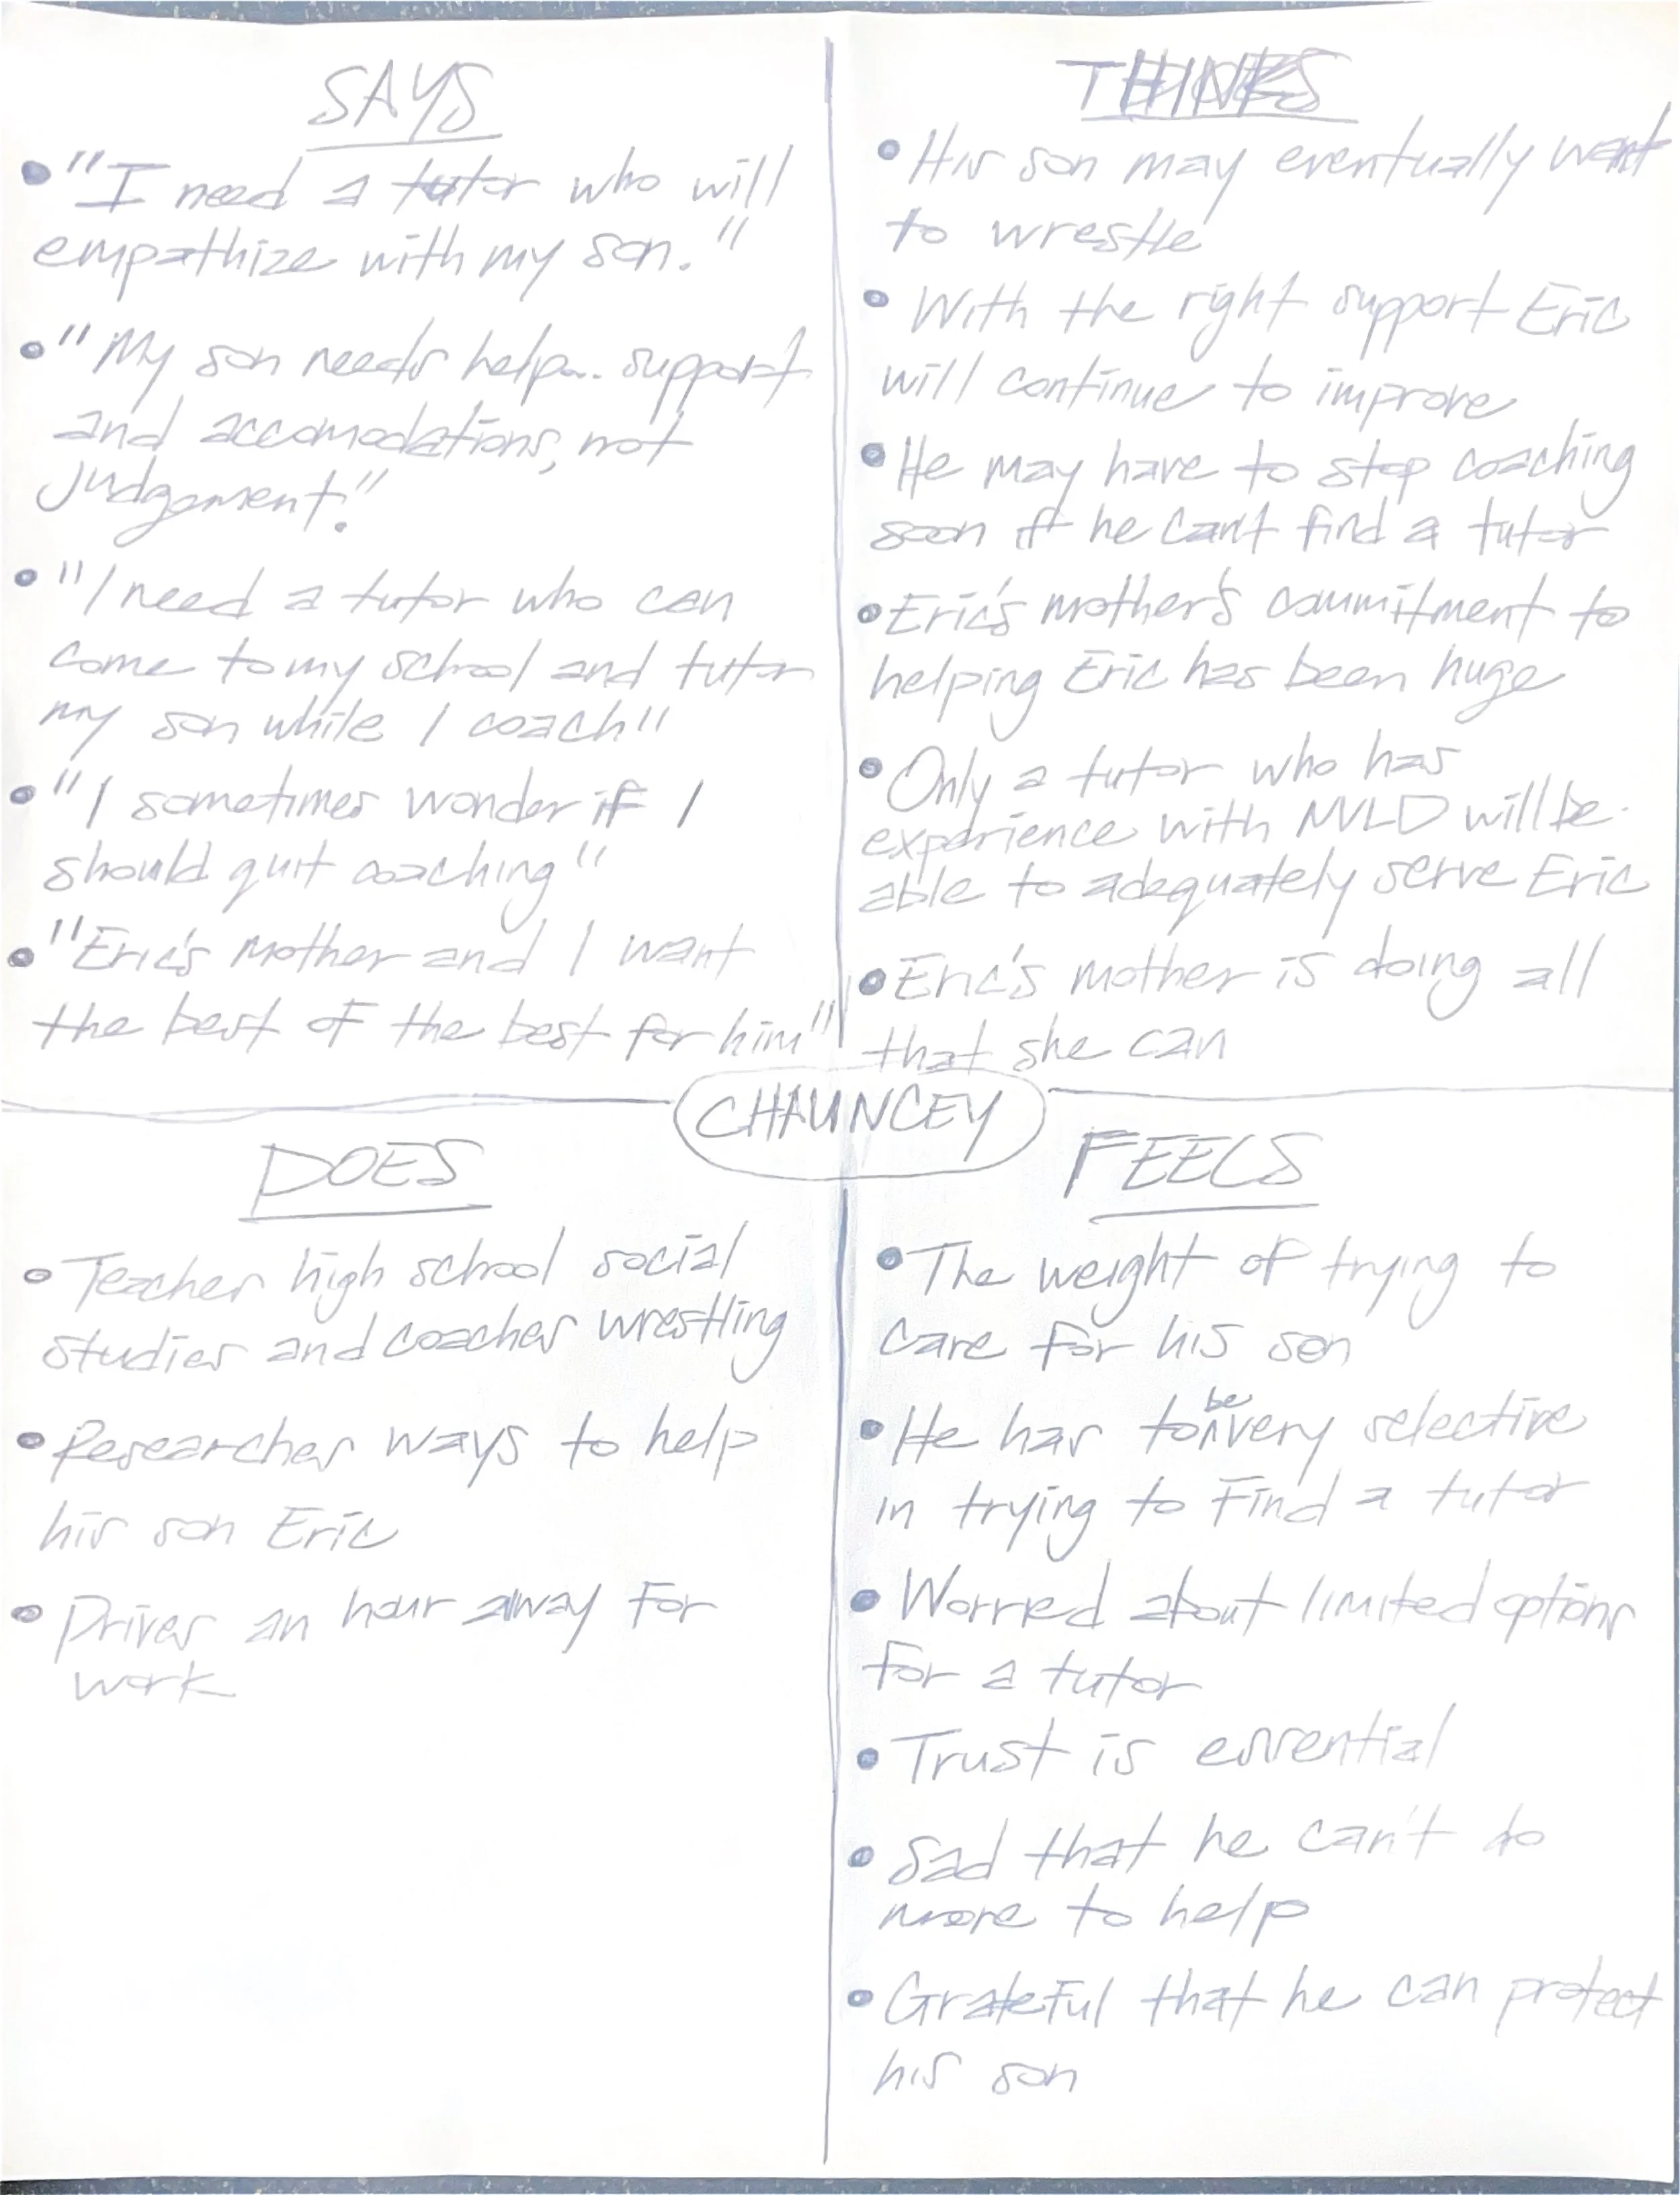 SAYS
• "I need a tutor who will
empathize with my son."
• "My son needs help... support
and accomodations, not
judgement."
• "I need a tutor who can
come to my school and tutor
my son while I coach"
• "I sometimes wonder if I
should quit coaching"
• "Eric's mother and I want
the best of the best for him"
THINKS
• His son may eventually want
to wrestle
• With the right support Eric
will continue to improve
• He may have to stop coaching
soon if he can't find a tutor
• Eric's mother's commitment to
helping Eric has been huge
• Only a tutor who has
experience with NVLD will be
able to adequately serve Eric
• Eric's mother is doing all
that she can
CHAUNCEY
DOES
• Teaches high school social
studies and coaches wrestling
• Researches ways to help
his son Eric
• Drives an hour away for
work
FEELS
• The weight of trying to
care for his son
• He has to be very selective
in trying to find a tutor
• Worried about limited options
for a tutor
• Trust is essential
• Sad that he can't do
more to help
• Grateful that he can protect
his son